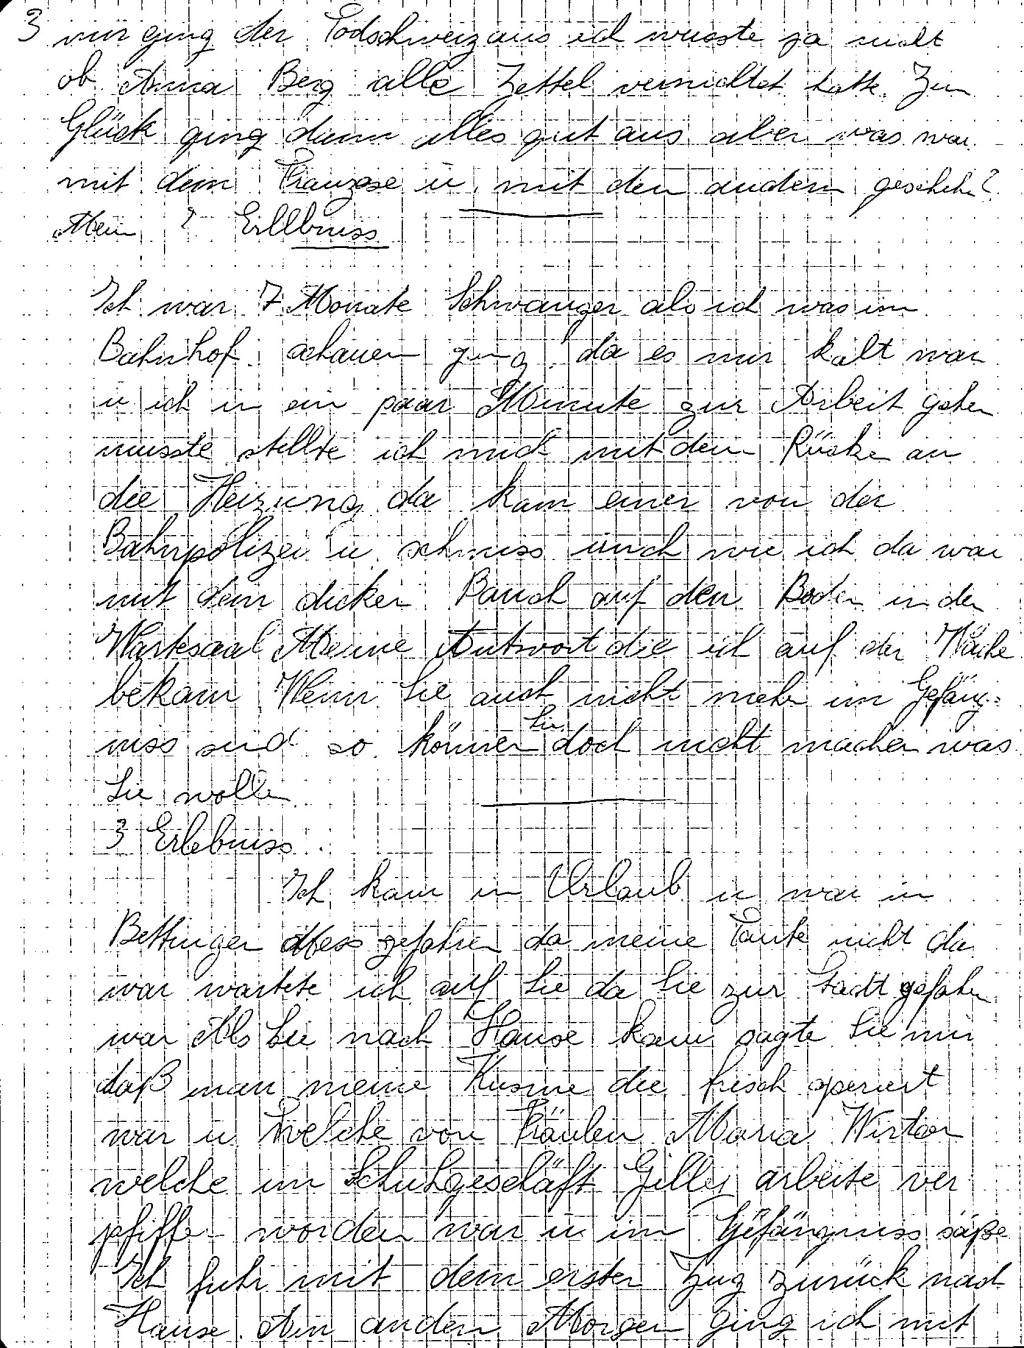 3 mir ging der Todschweiz aus ich wusste ja nicht
ob Anna Berg alle Zettel vernichtet hatte. Zum
Glück ging dann alles gut aus aber was war
mit dem Franzose u. mit den andern geschehn?
Mein 2 Erllbniss
Ich war 7 Monate Schwanger als ich was im
Bahnhof schauen ging da es mir kalt war
u ich in ein paar Minute zur Arbeit gehen
musste stellte ich mich mit dem Rücke an
die Heizung da kam einer von der
Bahnpolizei u schmiss mich wie ich da war
mit dem dicken Bauch auf den Boden in den
Wartesaal Meine Antwort die ich auf der Wache
bekam Wenn Sie auch nicht mehr im Gefäng-
niss sind so können Sie doch nicht machen was
Sie wolle
3 Erlebniss
Ich kam in Urlaub u war in
Bettingen Mess gefahren da meine Tante nicht da
war wartete ich auf Sie da Sie zur Stadt gefahren
war Als Sie nach Hause kam sagte Sie mir
daß man meine Kusine die frisch operiert
war u welche von Fräulen Maria Wirtor
welche im Schuhgeschäft Gilles arbeite ver
pfiffen worden war u im Gefängniss säße
Ich fuhr mit dem erster Zug zurück nach
Hause. Am andern Morgen ging ich mit